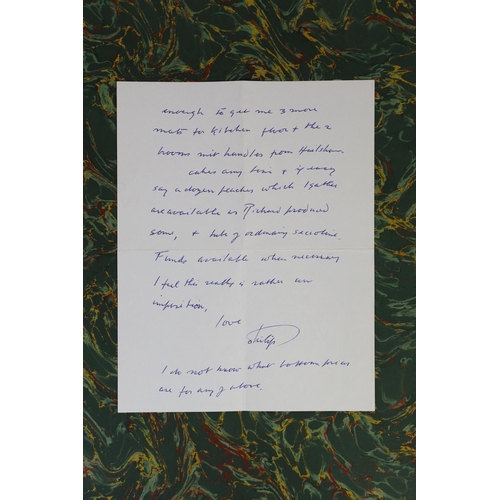 enough to get me 3 more
mats for Kitchen floor & the 2
brooms mit handles from Hailsham.
cakes any time & if easy
say a dozen peaches which I gather
are available as Richard produced
some, & tube of ordinary seccotine.
Funds available when necessary
I feel this really is rather an
imposition,
love
Philip
I do not know what bottom prices
are for any of above.